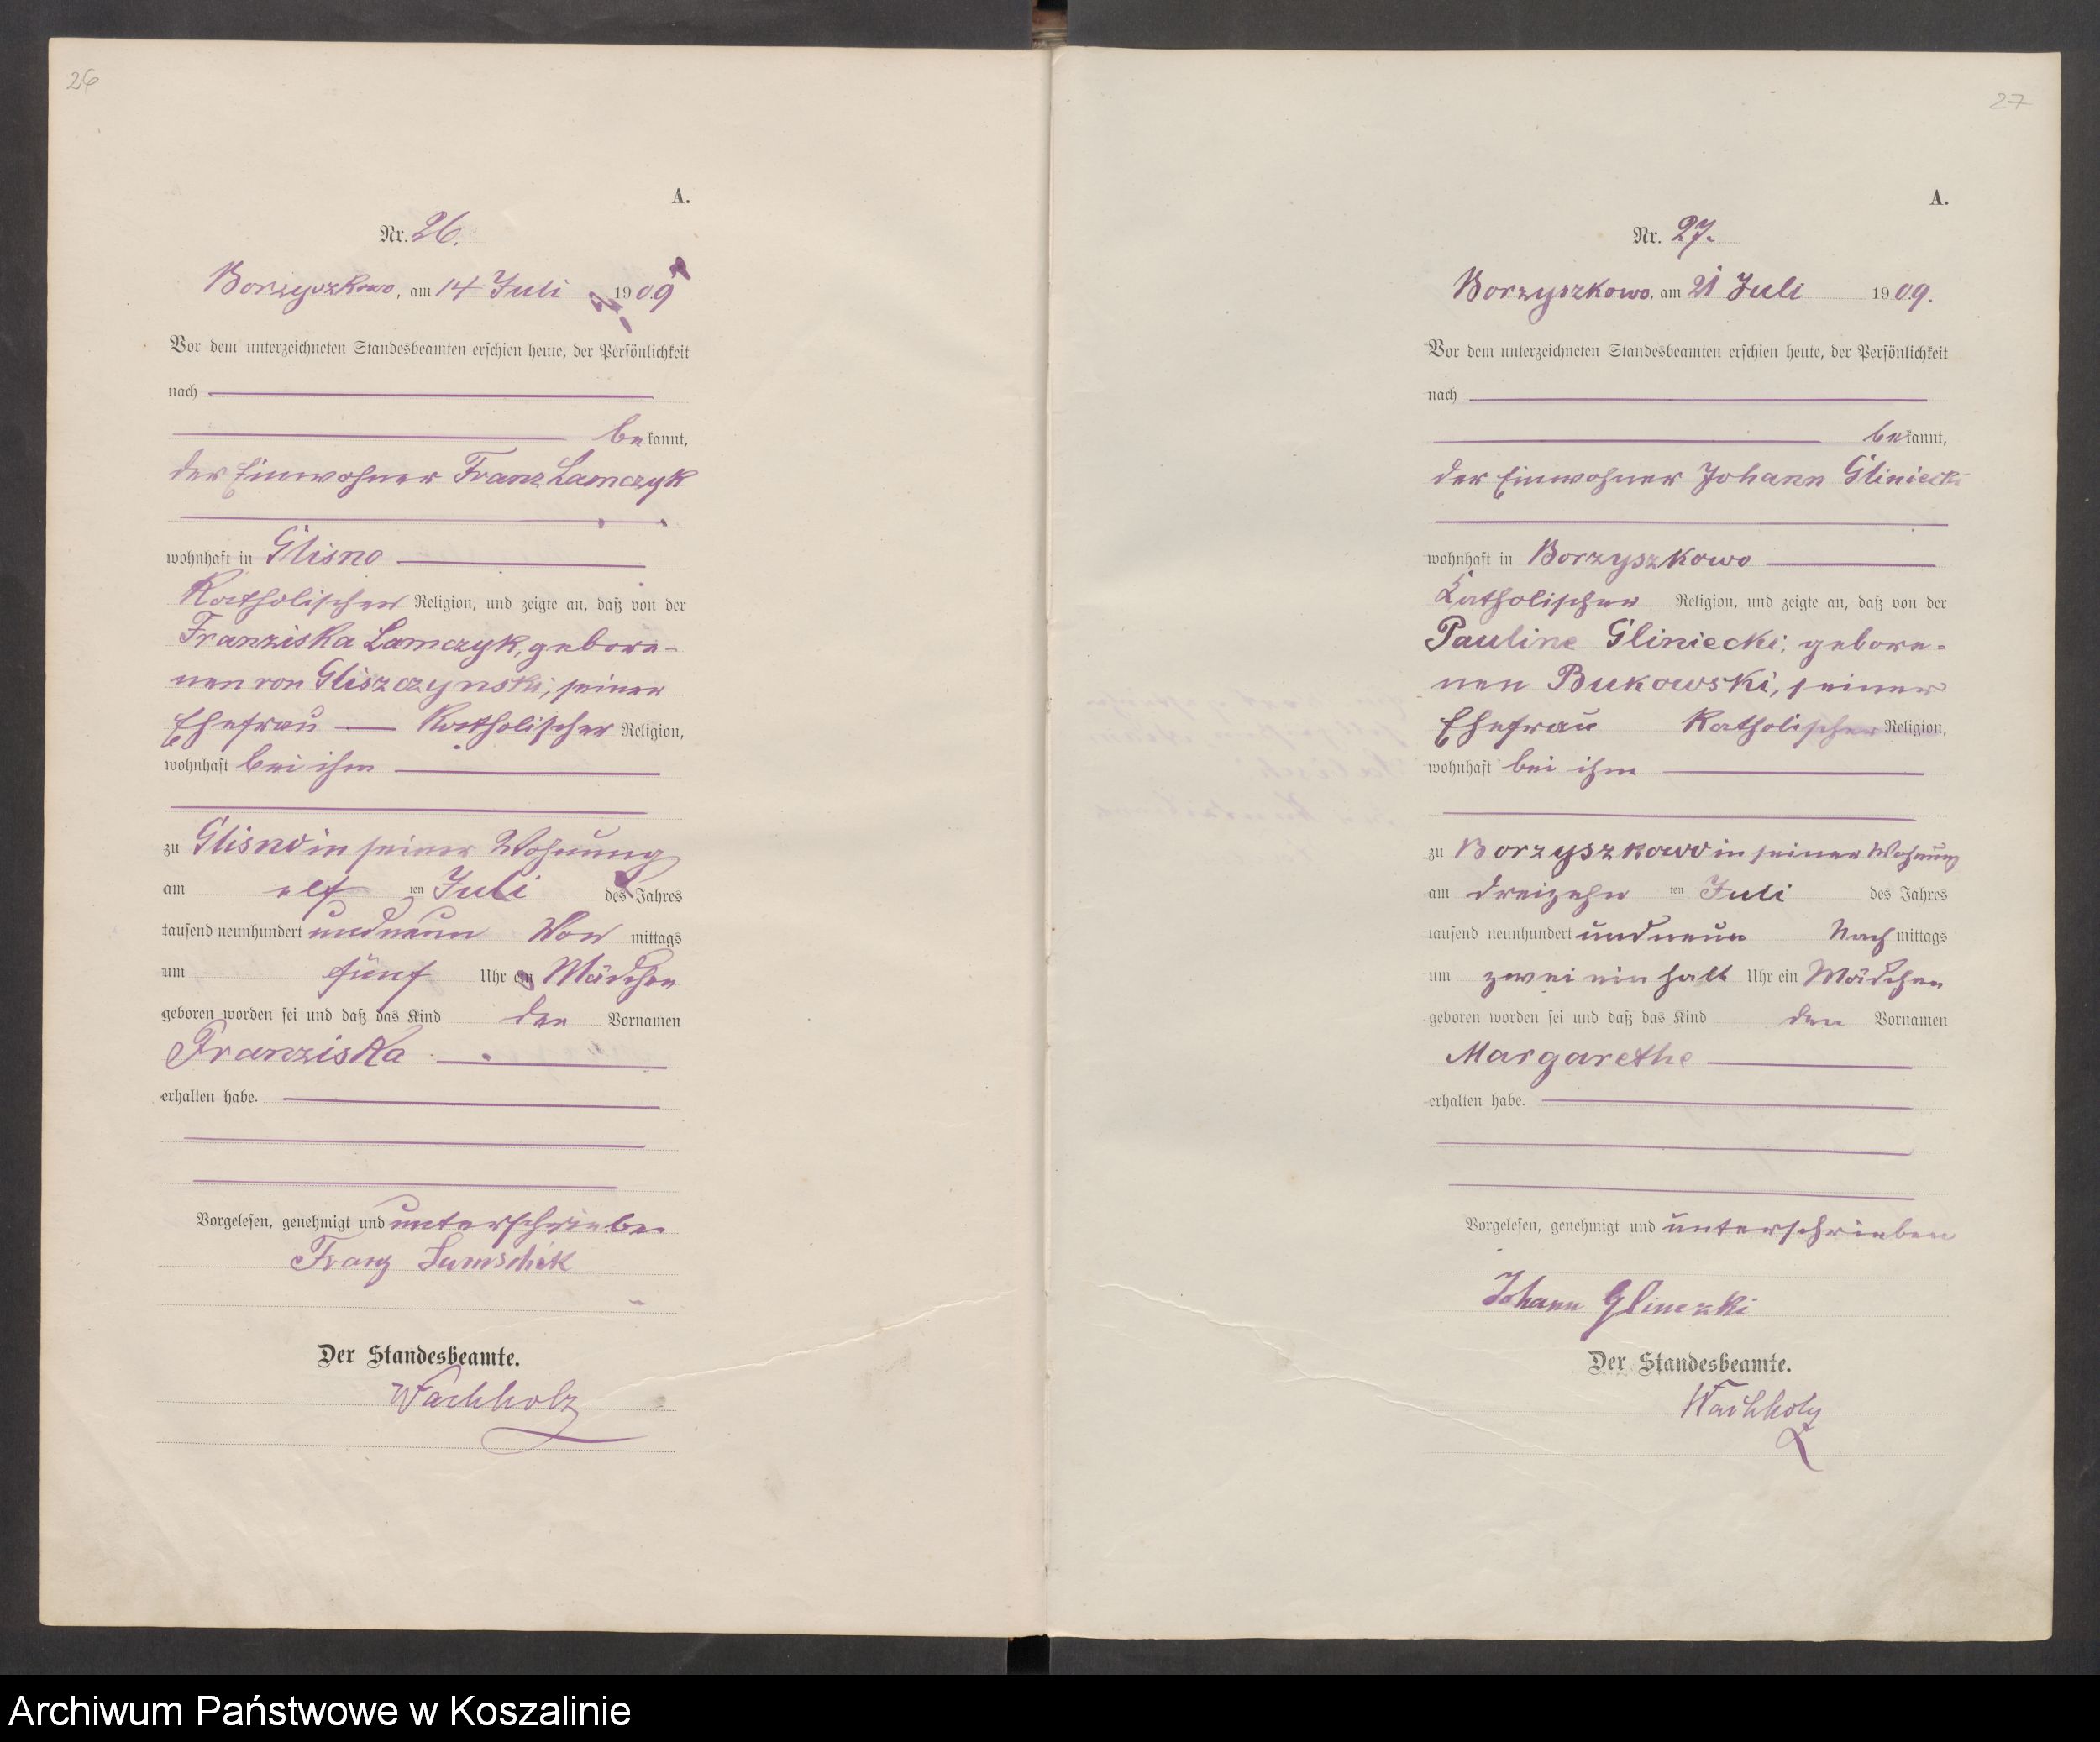 26
A.
Nr. 26.
Borzyszkowo, am 14 Juli 1909
Vor dem unterzeichneten Standesbeamten erschien heute, der Persönlichkeit
nach
bekannt,
der Einwohner Franz Lamczyk
wohnhaft in Glisno
Katholischer Religion, und zeigte an, daß von der
Franziska Lamczyk, gebore-
nen von Gliszczynski, seiner
Ehefrau — Katholischer Religion,
wohnhaft bei ihm
zu Glisno in seiner Wohnung
am elf ten Juli des Jahres
tausend neunhundert undneun Vor mittags
um fünf Uhr ein Mädchen
geboren worden sei und daß das Kind den Vornamen
Franziska
erhalten habe.
Vorgelesen, genehmigt und unterschrieben
Franz Lamschik
Der Standesbeamte.
Wachholz
27
A.
Nr. 27.
Borzyszkowo, am 21 Juli 1909.
Vor dem unterzeichneten Standesbeamten erschien heute, der Persönlichkeit
nach
bekannt,
der Einwohner Johann Gliniecki
wohnhaft in Borzyszkowo
Katholischer Religion, und zeigte an, daß von der
Pauline Gliniecki, gebore-
nen Bukowski, seiner
Ehefrau Katholischer Religion,
wohnhaft bei ihm
zu Borzyszkowo in seiner Wohnung
am dreizehn ten Juli des Jahres
tausend neunhundert undneun Nach mittags
um zwei ein halb Uhr ein Mädchen
geboren worden sei und daß das Kind den Vornamen
Margarethe
erhalten habe.
Vorgelesen, genehmigt und unterschrieben
Johann Glinezki
Der Standesbeamte.
Wachholz
Archiwum Państwowe w Koszalinie